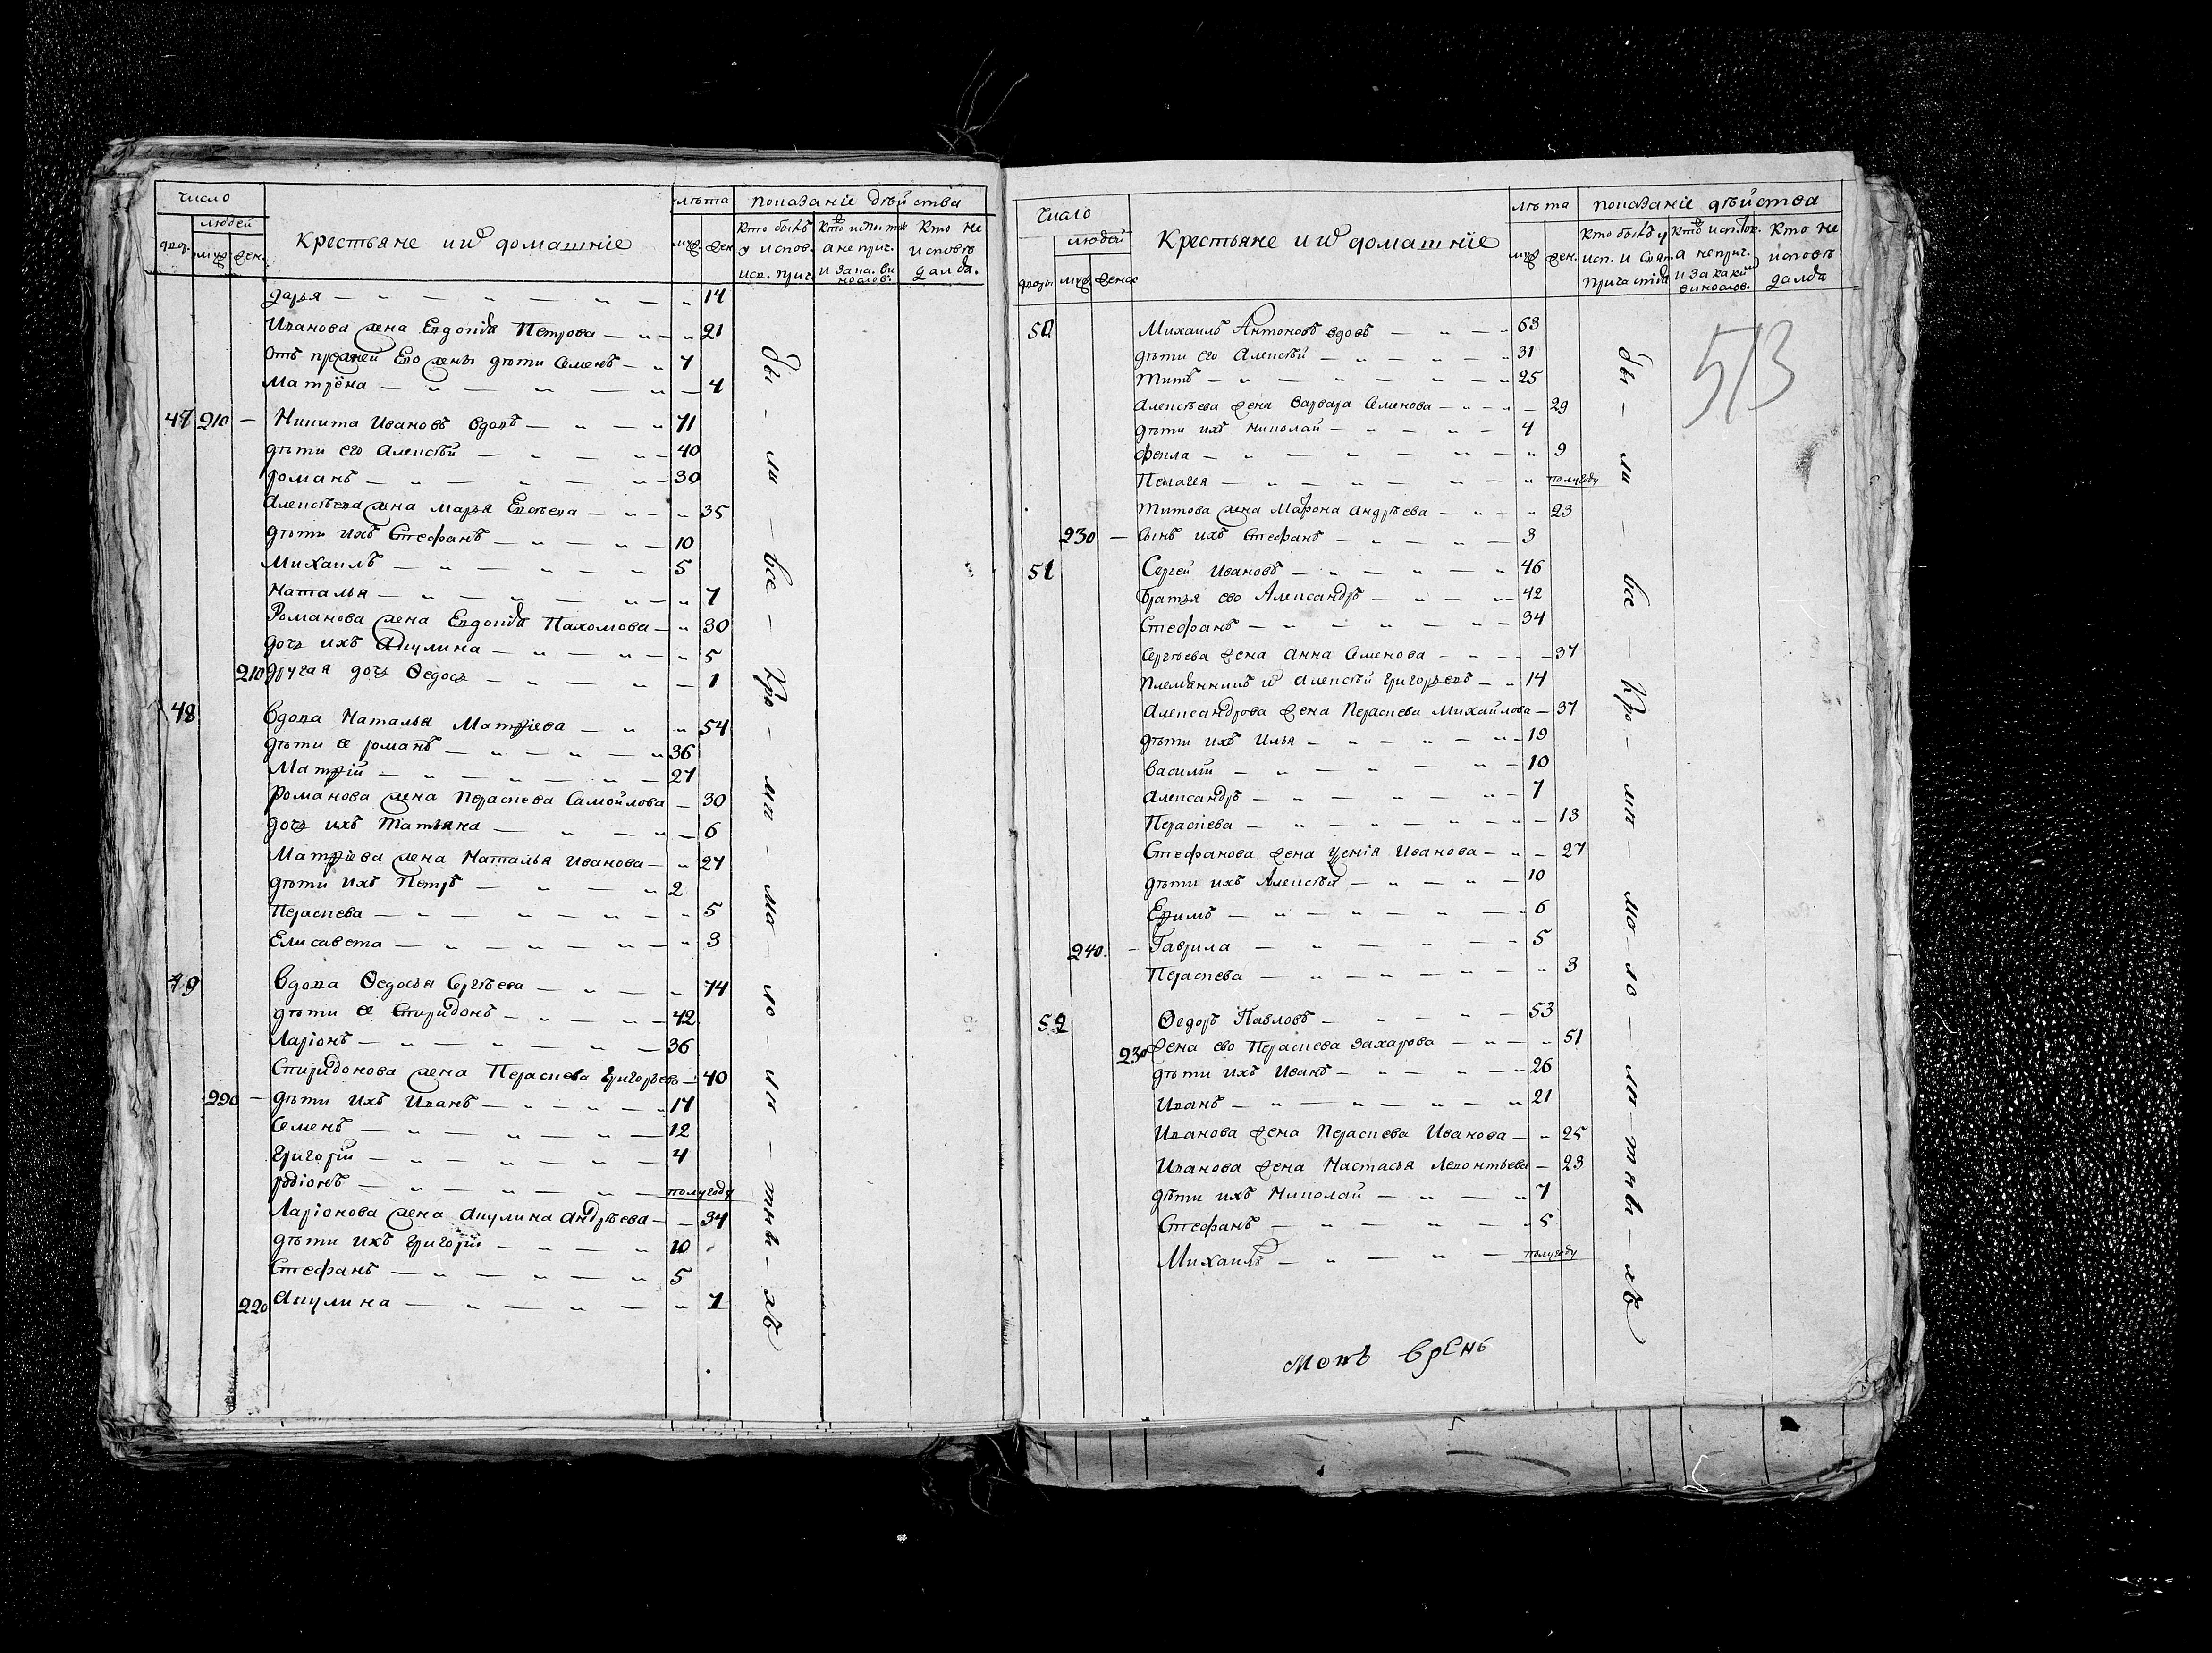 Число
людей
двор. муж. жен.
Крестьяне и их домашніе
лѣта
муж. жен.
показаніе дѣйства
Кто былъ у испов. исп. прич.
Кто испов. а не прич. и за как. винослов.
Кто не исповѣдалъ.
Дарья — " — " — " 14
Иванова жена Евдокия Петрова — " — " 21
Отъ прежней Ево жены дѣти Семенъ — " 7
Матрёна — " — " — 4
47 210 — Никита Ивановъ вдовъ — " — " 71
дѣти его Алексѣй — " — " — 40
романъ — " — " — " — 30
Алексѣева жена Марья Евсѣева — " — " 35
дѣти ихъ Стефанъ — " — " — 10
Михаилъ — " — " — " 5
Наталья — " — " — " 7
Романова жена Евдокия Пахомова — " 30
дочь ихъ Акулина — " — " — " 5
210 другая дочь Ѳедось — " — " — 1
48 Вдова Наталья Матфѣева — " " 54
дѣти ее романъ — " — " — " 36
Матфій — " — " — " — 27
Романова жена Параскева Самойлова — 30
дочь ихъ Татьяна — " — " — 6
Матфѣева жена Наталья Иванова — " 27
дѣти ихъ Петръ — " — " 2
Параскева — " — " — " — " 5
Елисавета — " — " — " — " 3
49 Вдова Ѳедосья Сергѣева — " — " 74
дѣти ее Спиридонъ — " — " — 42
Ларіонъ — " — " — " — 36
Спиридонова жена Параскева Григорьева — 40
220 — дѣти ихъ Иванъ — " — " — " 17
Семенъ — " — " — " — 12
Григорій — " — " — " — 4
родіонъ — " — " — " — полугоду
Ларіонова жена Акулина Андрѣева — — 34
дѣти ихъ Григорій — " — " 10
Стефанъ — " — " — " 5
220 Акулина — " — " — " 7
бы — ли — все — Кро — мѣ — ма — ло — лѣ — тнъ — хъ
Число
людей
дворы муж. женск.
Крестьяне и их домашніе
лѣта
муж. жен.
показаніе дѣйства
Кто былъ у исп. и свят. причастія
Кто исп. ток. а не прич. и за какой винослов.
Кто не исповѣдался
513
50 Михаилъ Антоновъ вдовъ — " — " 63
дѣти его Алексѣй — " — " — " 31
Титъ — " — " — " — " 25
Алексѣева жена Варвара Семенова — " — " — 29
дѣти ихъ Николай — " — " — 4
Фекла — " — " — " — " 9
Пелагея — " — " — " — " полугоду
Титова жена Матрона Андрѣева — " — " 23
230 — Сынъ ихъ Стефанъ — " — " — 3
51 Сергей Ивановъ — " — " — " 46
Братья ево Александръ — " — " — 42
Стефанъ — " — " — " — 34
Сергѣева жена Анна Семенова — " — — 37
Племянникъ их Алексѣй Григорьевъ — " 14
Александрова жена Параскева Михайлова — 37
дѣти ихъ Илья — " — " — " — 19
Василій — " — " — " — 10
Александръ — " — " — " — 7
Параскева — " — " — " — " — 13
Стефанова жена Ксенія Иванова — " — 27
дѣти ихъ Алексѣй — " — " — 10
Ефимъ — " — " — " — 6
240. — Гаврила — " — " — " 5
Параскева — " — " — " — " 3
52 Ѳедоръ Павловъ — " — " — 53
230 Жена ево Параскева Захарова — " — " 51
дѣти ихъ Иванъ — " — " — 26
Иванъ — " — " — " — " 21
Иванова жена Параскева Иванова — " 25
Иванова жена Настасья Леонтьева — 23
дѣти ихъ Николай — " — " 7
Стефанъ — " — " — " 5
Михаилъ — " — " — полугоду
бы — ли — все — Кро — мѣ — ма — ло — лѣ тнъ — хъ